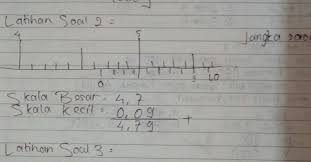 Latihan Soal 2 =
Jangka
4 5
0 5 10
Skala Besar = 4,7
Skala Kecil = 0,09 +
4,79
Latihan Soal 3 =